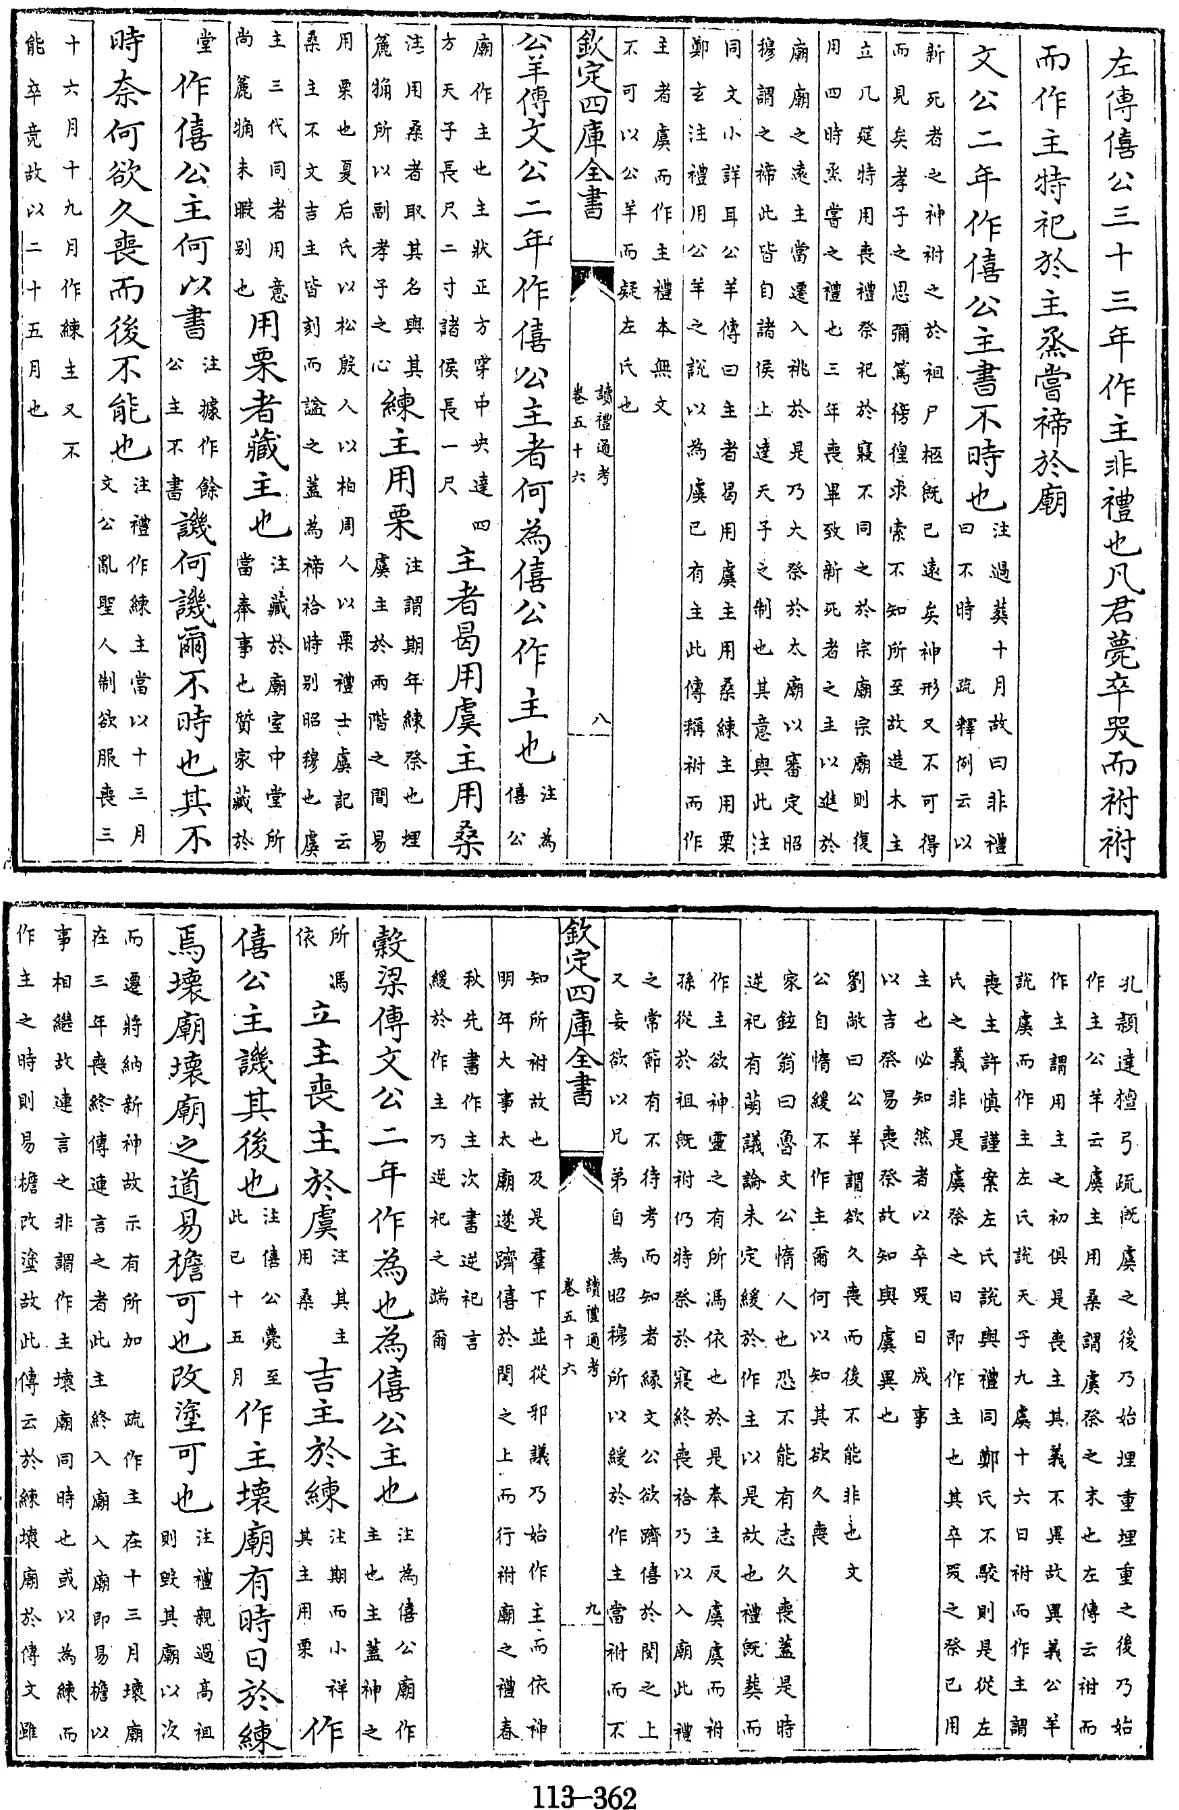 左傳僖公三十三年作主非禮也凡君薨卒哭而祔祔
而作主特祀於主烝嘗禘於廟
文公二年作僖公主書不時也注過葬十月故曰非禮
曰不時 疏釋例云以
新死者之神祔之於祖尸柩既已遠矣神形又不可得
而見矣孝子之思彌篤徬徨求索不知所至故造木主
立几筵特用喪禮祭祀於寢不同之於宗廟宗廟則復
用四時烝嘗之禮也三年喪畢致新死者之主以進於
廟廟之遠主當遷入祧於是乃大祭於太廟以審定昭
穆謂之禘此皆自諸侯上達天子之制也其意與此注
同文小詳耳公羊傳曰主者曷用虞主用桑練主用栗
鄭玄注禮用公羊之說以為虞已有主此傳稱祔而作
主者虞而作主禮本無文
不可以公羊而疑左氏也
欽定四庫全書
讀禮通考
卷五十六
八
公羊傳文公二年作僖公主者何為僖公作主也注為
僖公
廟作主也主狀正方穿中央達四
方天子長尺二寸諸侯長一尺
主者曷用虞主用桑
注用桑者取其名與其
麄觕所以副孝子之心
練主用栗
注謂期年練祭也埋
虞主於兩階之間易
用栗也夏后氏以松殷人以柏周人以栗禮士虞記云
桑主不文吉主皆刻而諡之蓋為禘祫時别昭穆也虞
主三代同者用意
尚麄觕未暇别也
用栗者藏主也
注藏於廟室中堂所
當奉事也質家藏於
堂
作僖公主何以書
注據作餘
公主不書
譏何譏爾不時也其不
時奈何欲久喪而後不能也
注禮作練主當以十三月
文公亂聖人制欲服喪三
十六月十九月作練主又不
能卒竟故以二十五月也
孔穎達檀弓疏既虞之後乃始埋重埋重之後乃始
作主公羊云虞主用桑謂虞祭之末也左傳云祔而
作主謂用主之初俱是喪主其義不異故異義公羊
說虞而作主左氏說天子九虞十六日祔而作主謂
喪主許慎謹案左氏說與禮同鄭氏不駮則是從左
氏之義非是虞祭之日即作主也其卒哭之祭已用
主也必知然者以卒哭日成事
以吉祭易喪祭故知與虞異也
劉敞曰公羊謂欲久喪而後不能非也文
公自惰緩不作主爾何以知其欲久喪
家鉉翁曰魯文公惰人也恐不能有志久喪蓋是時
逆祀有萌議論未定緩於作主以是故也禮既葬而
作主欲神靈之有所馮依也於是奉主反虞虞而祔
孫從於祖既祔仍特祭於寢終喪祫乃以入廟此禮
之常節有不待考而知者緣文公欲躋僖於閔之上
又妄欲以兄弟自為昭穆所以緩於作主當祔而不
欽定四庫全書
讀禮通考
卷五十六
九
知所祔故也及是羣下並從邪議乃始作主而依神
明年大事太廟遂躋僖於閔之上而行祔廟之禮春
秋先書作主次書逆祀言
緩於作主乃逆祀之端爾
穀梁傳文公二年作為也為僖公主也
注為僖公廟作
主也主蓋神之
所馮
依
立主喪主於虞
注其主
用桑
吉主於練
注期而小祥
其主用栗
作
僖公主譏其後也
注僖公薨至
此已十五月
作主壞廟有時日於練
焉壞廟壞廟之道易檐可也改塗可也
注禮親過高祖
則毀其廟以次
而遷將納新神故示有所加 疏作主在十三月壞廟
在三年喪終傳連言之者此主終入廟入廟即易檐以
事相繼故連言之非謂作主壞廟同時也或以為練而
作主之時則易檐改塗故此傳云於練壞廟於傳文雖
113-362